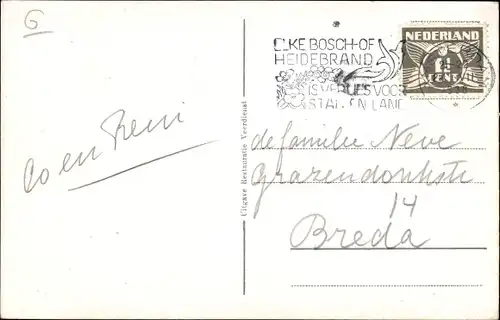 G
ELKE BOSCH-OF
HEIDEBRAND
IS VERLIES VOOR
STAD EN LAND
NEDERLAND
1½
CENT
Co en Reni
Uitgave Restauratie Veerdienst
de familie Neve
14
Breda